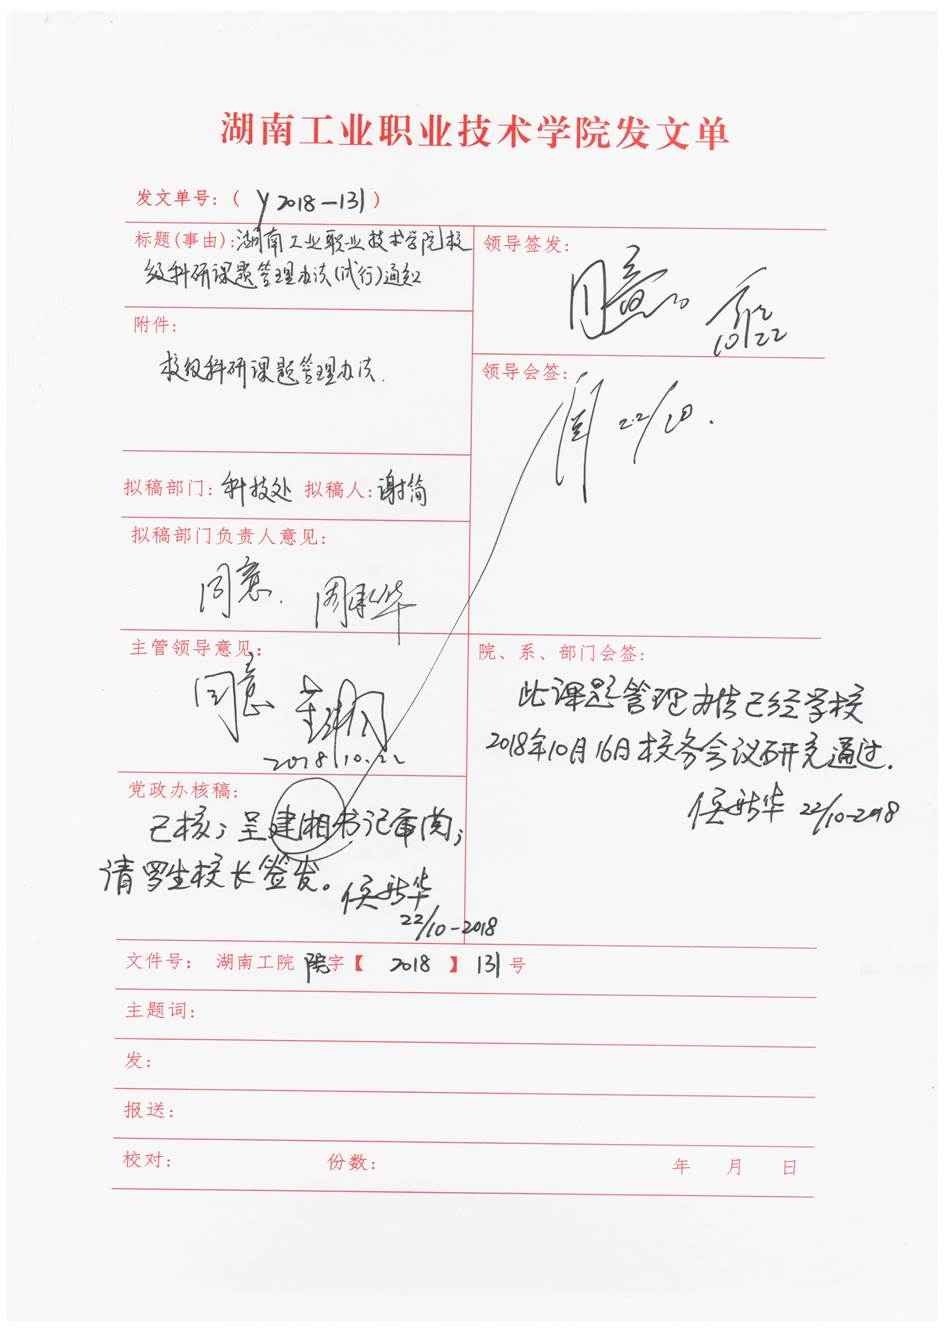 湖南工业职业技术学院发文单
发文单号:( y 2018-131 )
标题(事由):湖南工业职业技术学院校
级科研课题管理办法(试行)通知
附件:
校级科研课题管理办法.
拟稿部门:科技处 拟稿人:谢简
拟稿部门负责人意见:
同意.
主管领导意见:
同意
2018.10.22
党政办核稿:
已核;呈建湘书记审阅;
请罗生校长签发。侯新华
22/10-2018
领导签发:
同意
10/22
领导会签:
22/10.
院、系、部门会签:
此课题管理办法已经学校
2018年10月16日校务会议研究通过.
侯新华 22/10-2018
文件号: 湖南工院 院字【 2018 】 131 号
主题词:
发:
报送:
校对: 份数: 年 月 日